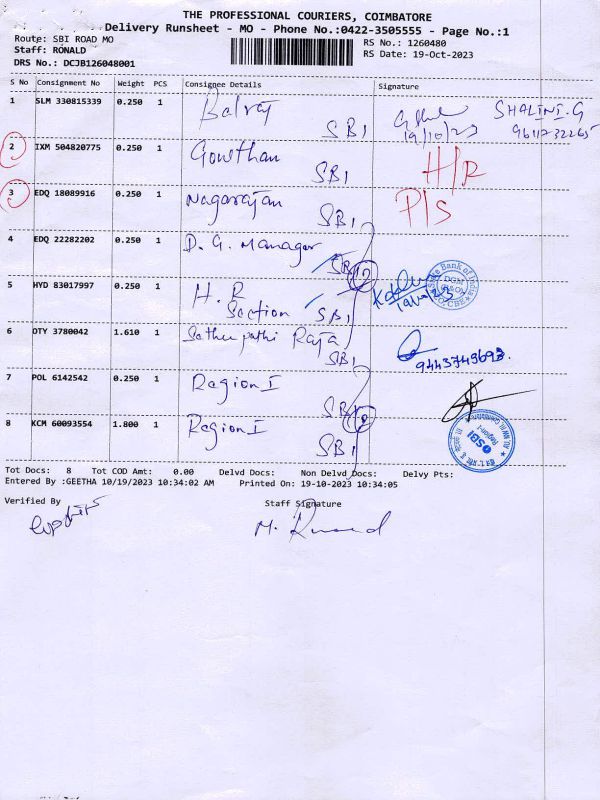 THE PROFESSIONAL COURIERS, COIMBATORE
Delivery Runsheet - MO - Phone No.:0422-3505555 - Page No.:1
Route: SBI ROAD MO
RS No.: 1260480
Staff: RONALD
RS Date: 19-Oct-2023
DRS No.: DCJB126048001
S No Consignment No Weight PCS Consignee Details Signature
1 SLM 330815339 0.250 1 Balraj SBI 19/10/23 SHALINI.G
2 IXM 504820775 0.250 1 Gowthan SBI H/R
3 EDQ 18089916 0.250 1 Nagarajan SBI P/S
4 EDQ 22282202 0.250 1 D.G. Manager SBI
State Bank of India
DGM
5 HYD 83017997 0.250 1 H.R Section SBI
6 OTY 3780042 1.610 1 Sathupathi Raja SBI 9443749693.
7 POL 6142542 0.250 1 Region I SBI
8 KCM 60093554 1.800 1 Region I SBI
SBI
Region-I
Tot Docs: 8 Tot COD Amt: 0.00 Delvd Docs: Non Delvd Docs: Delvy Pts:
Entered By :GEETHA 10/19/2023 10:34:02 AM Printed On: 19-10-2023 10:34:05
Verified By Staff Signature